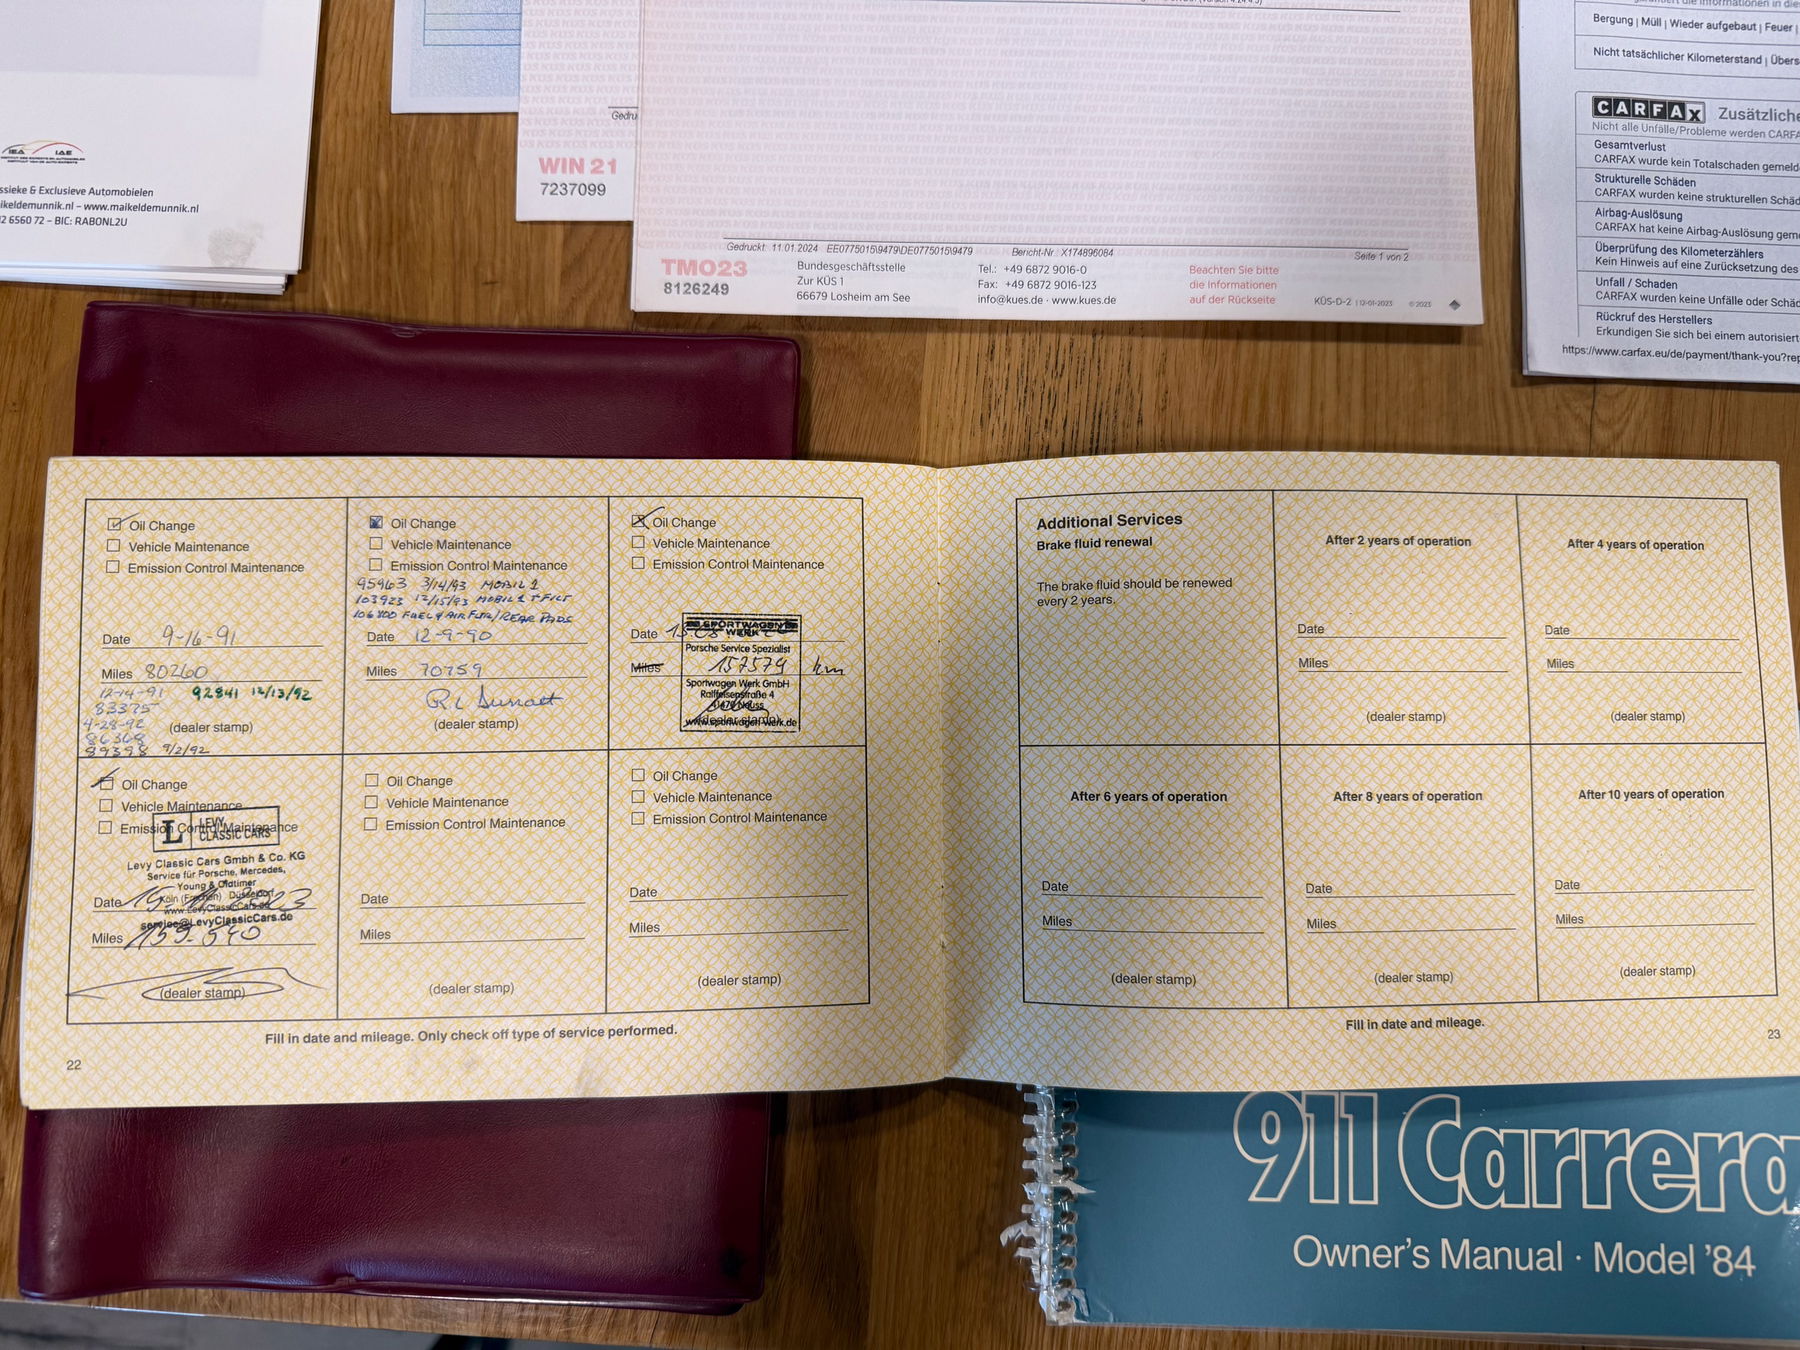 IEA IAE
ssieke & Exclusieve Automobielen
ikeldemunnik.nl – www.maikeldemunnik.nl
2 6560 72 – BIC: RABONL2U
Gedru
WIN 21
7237099
Gedruckt: 11.01.2024 EE0775015\9479\DE0775015\9479 Bericht-Nr.: X174896084 Seite 1 von 2
TMO23
8126249
Bundesgeschäftsstelle
Zur KÜS 1
66679 Losheim am See
Tel.: +49 6872 9016-0
Fax: +49 6872 9016-123
info@kues.de · www.kues.de
Beachten Sie bitte
die Informationen
auf der Rückseite
KÜS-D-2 | 12-01-2023 © 2023
Bergung | Müll | Wieder aufgebaut | Feuer |
Nicht tatsächlicher Kilometerstand | Übers
CARFAX Zusätzliche
Nicht alle Unfälle/Probleme werden CARFA
Gesamtverlust
CARFAX wurde kein Totalschaden gemeld
Strukturelle Schäden
CARFAX wurden keine strukturellen Schäd
Airbag-Auslösung
CARFAX hat keine Airbag-Auslösung gem
Überprüfung des Kilometerzählers
Kein Hinweis auf eine Zurücksetzung des
Unfall / Schaden
CARFAX wurden keine Unfälle oder Schäd
Rückruf des Herstellers
Erkundigen Sie sich bei einem autorisiert
https://www.carfax.eu/de/payment/thank-you?rep
Oil Change
Vehicle Maintenance
Emission Control Maintenance
Date 9-16-91
Miles 80260
12-14-91 92841 12/13/92
83375
4-28-92
86368
(dealer stamp)
89398 9/2/92
Oil Change
Vehicle Maintenance
Emission Control Maintenance
95963 3/14/93 MOBIL 1
103923 12/15/93 MOBIL 1 + FILT
FUEL & AIR FLTR/REAR PADS
Date 12-9-90
Miles 70759
(dealer stamp)
Oil Change
Vehicle Maintenance
Emission Control Maintenance
SPORTWAGEN
WERK
Date
Porsche Service Spezialist
Miles 157579 km
Sportwagen Werk GmbH
Raiffeisenstraße 4
41470 Neuss
(dealer stamp)
www.sportwagen-werk.de
Oil Change
Vehicle Maintenance
Emission Control Maintenance
L LEVY
CLASSIC CARS
Levy Classic Cars Gmbh & Co. KG
Service für Porsche, Mercedes,
Young & Oldtimer
Köln (Frechen) Düsseldorf
www.LevyClassicCars.de
Date
service@LevyClassicCars.de
Miles 159.540
(dealer stamp)
Oil Change
Vehicle Maintenance
Emission Control Maintenance
Date
Miles
(dealer stamp)
Oil Change
Vehicle Maintenance
Emission Control Maintenance
Date
Miles
(dealer stamp)
Fill in date and mileage. Only check off type of service performed.
22
Additional Services
Brake fluid renewal
The brake fluid should be renewed
every 2 years.
After 2 years of operation
Date
Miles
(dealer stamp)
After 4 years of operation
Date
Miles
(dealer stamp)
After 6 years of operation
Date
Miles
(dealer stamp)
After 8 years of operation
Date
Miles
(dealer stamp)
After 10 years of operation
Date
Miles
(dealer stamp)
Fill in date and mileage.
23
911 Carrera
Owner's Manual · Model '84